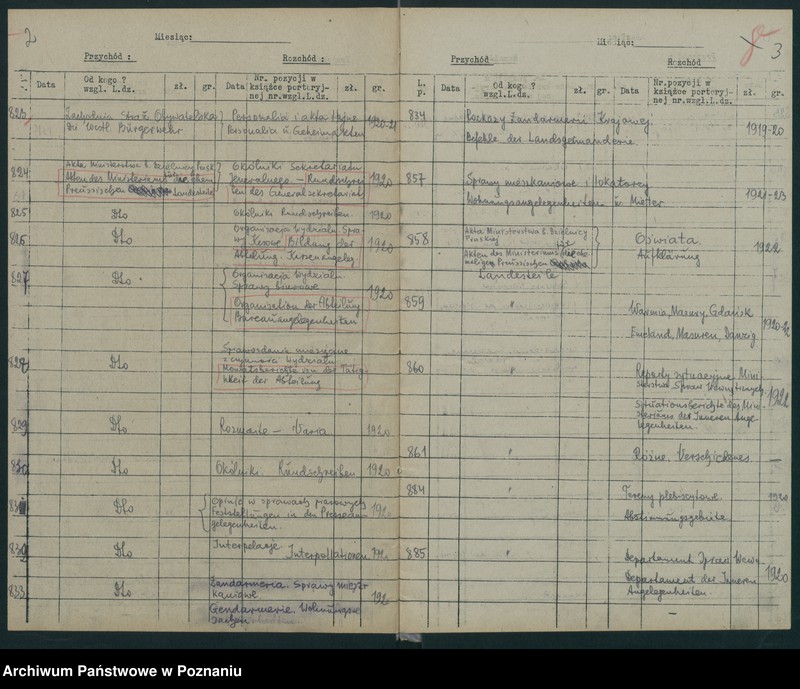 2
Miesiąc:
Przychód :
Rozchód :
Data
Od kogo ?
wzgl. L.dz.
zł.
gr.
Data
Nr. pozycji w
książce portoryj-
nej nr.wzgl.L.dz.
zł.
gr.
823
Zachodnia Straż Obywatelska
Bürgerwehr
Personalia i akta tajne
Personalia u. Geheimakten
1920-21
824
Akta Ministerstwa b. Dzielnicy Prusk.
Akten des Ministeriums
Preussischen Landesteile
Okólniki Sekretariatu
Generalnego - Rundschrei-
ben des Generalsekretariats
1920
825
Dto
Okólniki Rundschreiben
1920
826
Dto
Organizacja Wydziału Spra-
w Kasow. Bildung der
Abteilung. Kassenangeleg.
1920
827
Dto
Organizacja Wydziału
Sprawy biurowe
Organisation der Abteilung
Büroangelegenheiten
1920
828
Dto
Sprawozdania miesięczne
z czynności Wydziału
Monatsberichte von der Tätig-
keit der Abteilung
829
Dto
Rozmaite - Varia
1920
830
Dto
Okólniki. Rundschreiben
1920
831
Dto
Opinie w sprawach prasowych
Feststellungen in den Pressean-
gelegenheiten.
832
Dto
Interpelacje
Interpellationen
833
Dto
Żandarmeria. Sprawy miesz-
kaniowe
Gendarmerie. Wohnungs-
sachen
3
Miesiąc:
Przychód
Rozchód
L.
p.
Data
Od kogo ?
wzgl. L.dz.
zł.
gr.
Data
Nr.pozycji w
książce portoryj-
nej nr.wzgl.L.dz.
zł.
gr.
834
Rozkazy Żandarmerii Krajowej
Befehle der Landsgendarmerie
1919-20
857
Sprawy mieszkaniowe i lokatorzy
Wohnungsangelegenheiten u. Mieter
1921-23
858
Akta Ministerstwa b. Dzielnicy
Pruskiej
Akten des Ministeriums der ehe-
maligen Preussischen
Landesteile
Oświata
Aufklärung
1922
859
"
Warmia, Mazury, Gdańsk
Ermland, Masuren, Danzig
1920-22
860
"
Raporty sytuacyjne Mini-
sterstwa Spraw Wewnętrznych
Situationsberichte des Min-
isteriums der Inneren Ange-
legenheiten.
1922
861
"
Różne. Verschiedenes
—
884
"
Tereny plebiscytowe.
Abstimmungsgebiete
1920
885
"
Departament Spraw Wewn.
Departament der Inneren
Angelegenheiten.
1920
Archiwum Państwowe w Poznaniu